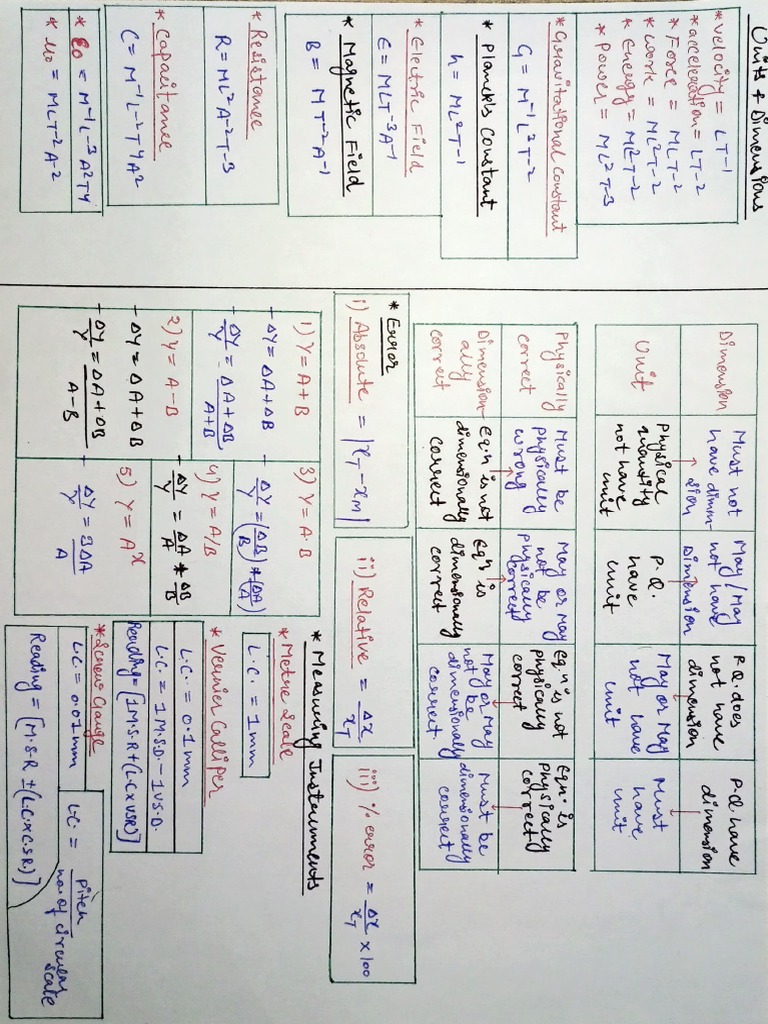 Units & Dimensions
* velocity = LT-1
* acceleration = LT-2
* Force = MLT-2
* work = ML2T-2
* Energy = ML2T-2
* Power = ML2T-3
* Gravitational Constant
G = M-1L3T-2
* Planck's Constant
h = ML2T-1
* Electric Field
E = MLT-3A-1
* Magnetic Field
B = MT-2A-1
* Resistance
R = ML2A-2T-3
* Capacitance
C = M-1L-2T4A2
* ε0 = M-1L-3A2T4
* μ0 = MLT-2A-2
Dimension
Must not
have dimen-
sion
May/May
not have
Dimension
P.Q does
not have
dimension
P.Q. have
dimension
Unit
Physical
quantity
not have
unit
P.Q.
have
unit
May or May
not have
unit
Must
have
unit
Physically
correct
Must be
physically
wrong
May or may
not be
physically
correct
Eqn is not
physically
correct
Eqn. is
physically
correct
Dimension-
ally
correct
Eq.n is not
dimensionally
correct
Eqn is
dimensionally
correct
May or May
not be
dimensionally
correct
Must be
dimensionally
correct
* Error
i) Absolute = |xT - xM|
ii) Relative = Δx/xT
iii) % error = Δx/xT × 100
1) Y = A+B
- ΔY = ΔA+ΔB
- ΔY/Y = ΔA+ΔB/A+B
2) Y = A-B
- ΔY = ΔA+ΔB
- ΔY/Y = ΔA+ΔB/A-B
3) Y = A·B
- ΔY/Y = (ΔB/B)+(ΔA/A)
4) Y = A/B
- ΔY/Y = ΔA/A + ΔB/B
5) Y = Ax
- ΔY/Y = 3ΔA/A
* Measuring Instruments
* Metre Scale
L.C. = 1mm
* Vernier Calliper
L.C. = 0.1mm
L.C. = 1M.S.D. - 1V.S.D.
Reading = [1M.S.R + (L.C x VSR)]
* Screw Gauge
L.C = 0.01mm
L.C. = Pitch/no. of circular scale
Reading = [M.S.R ± (L.C x C.SR)]